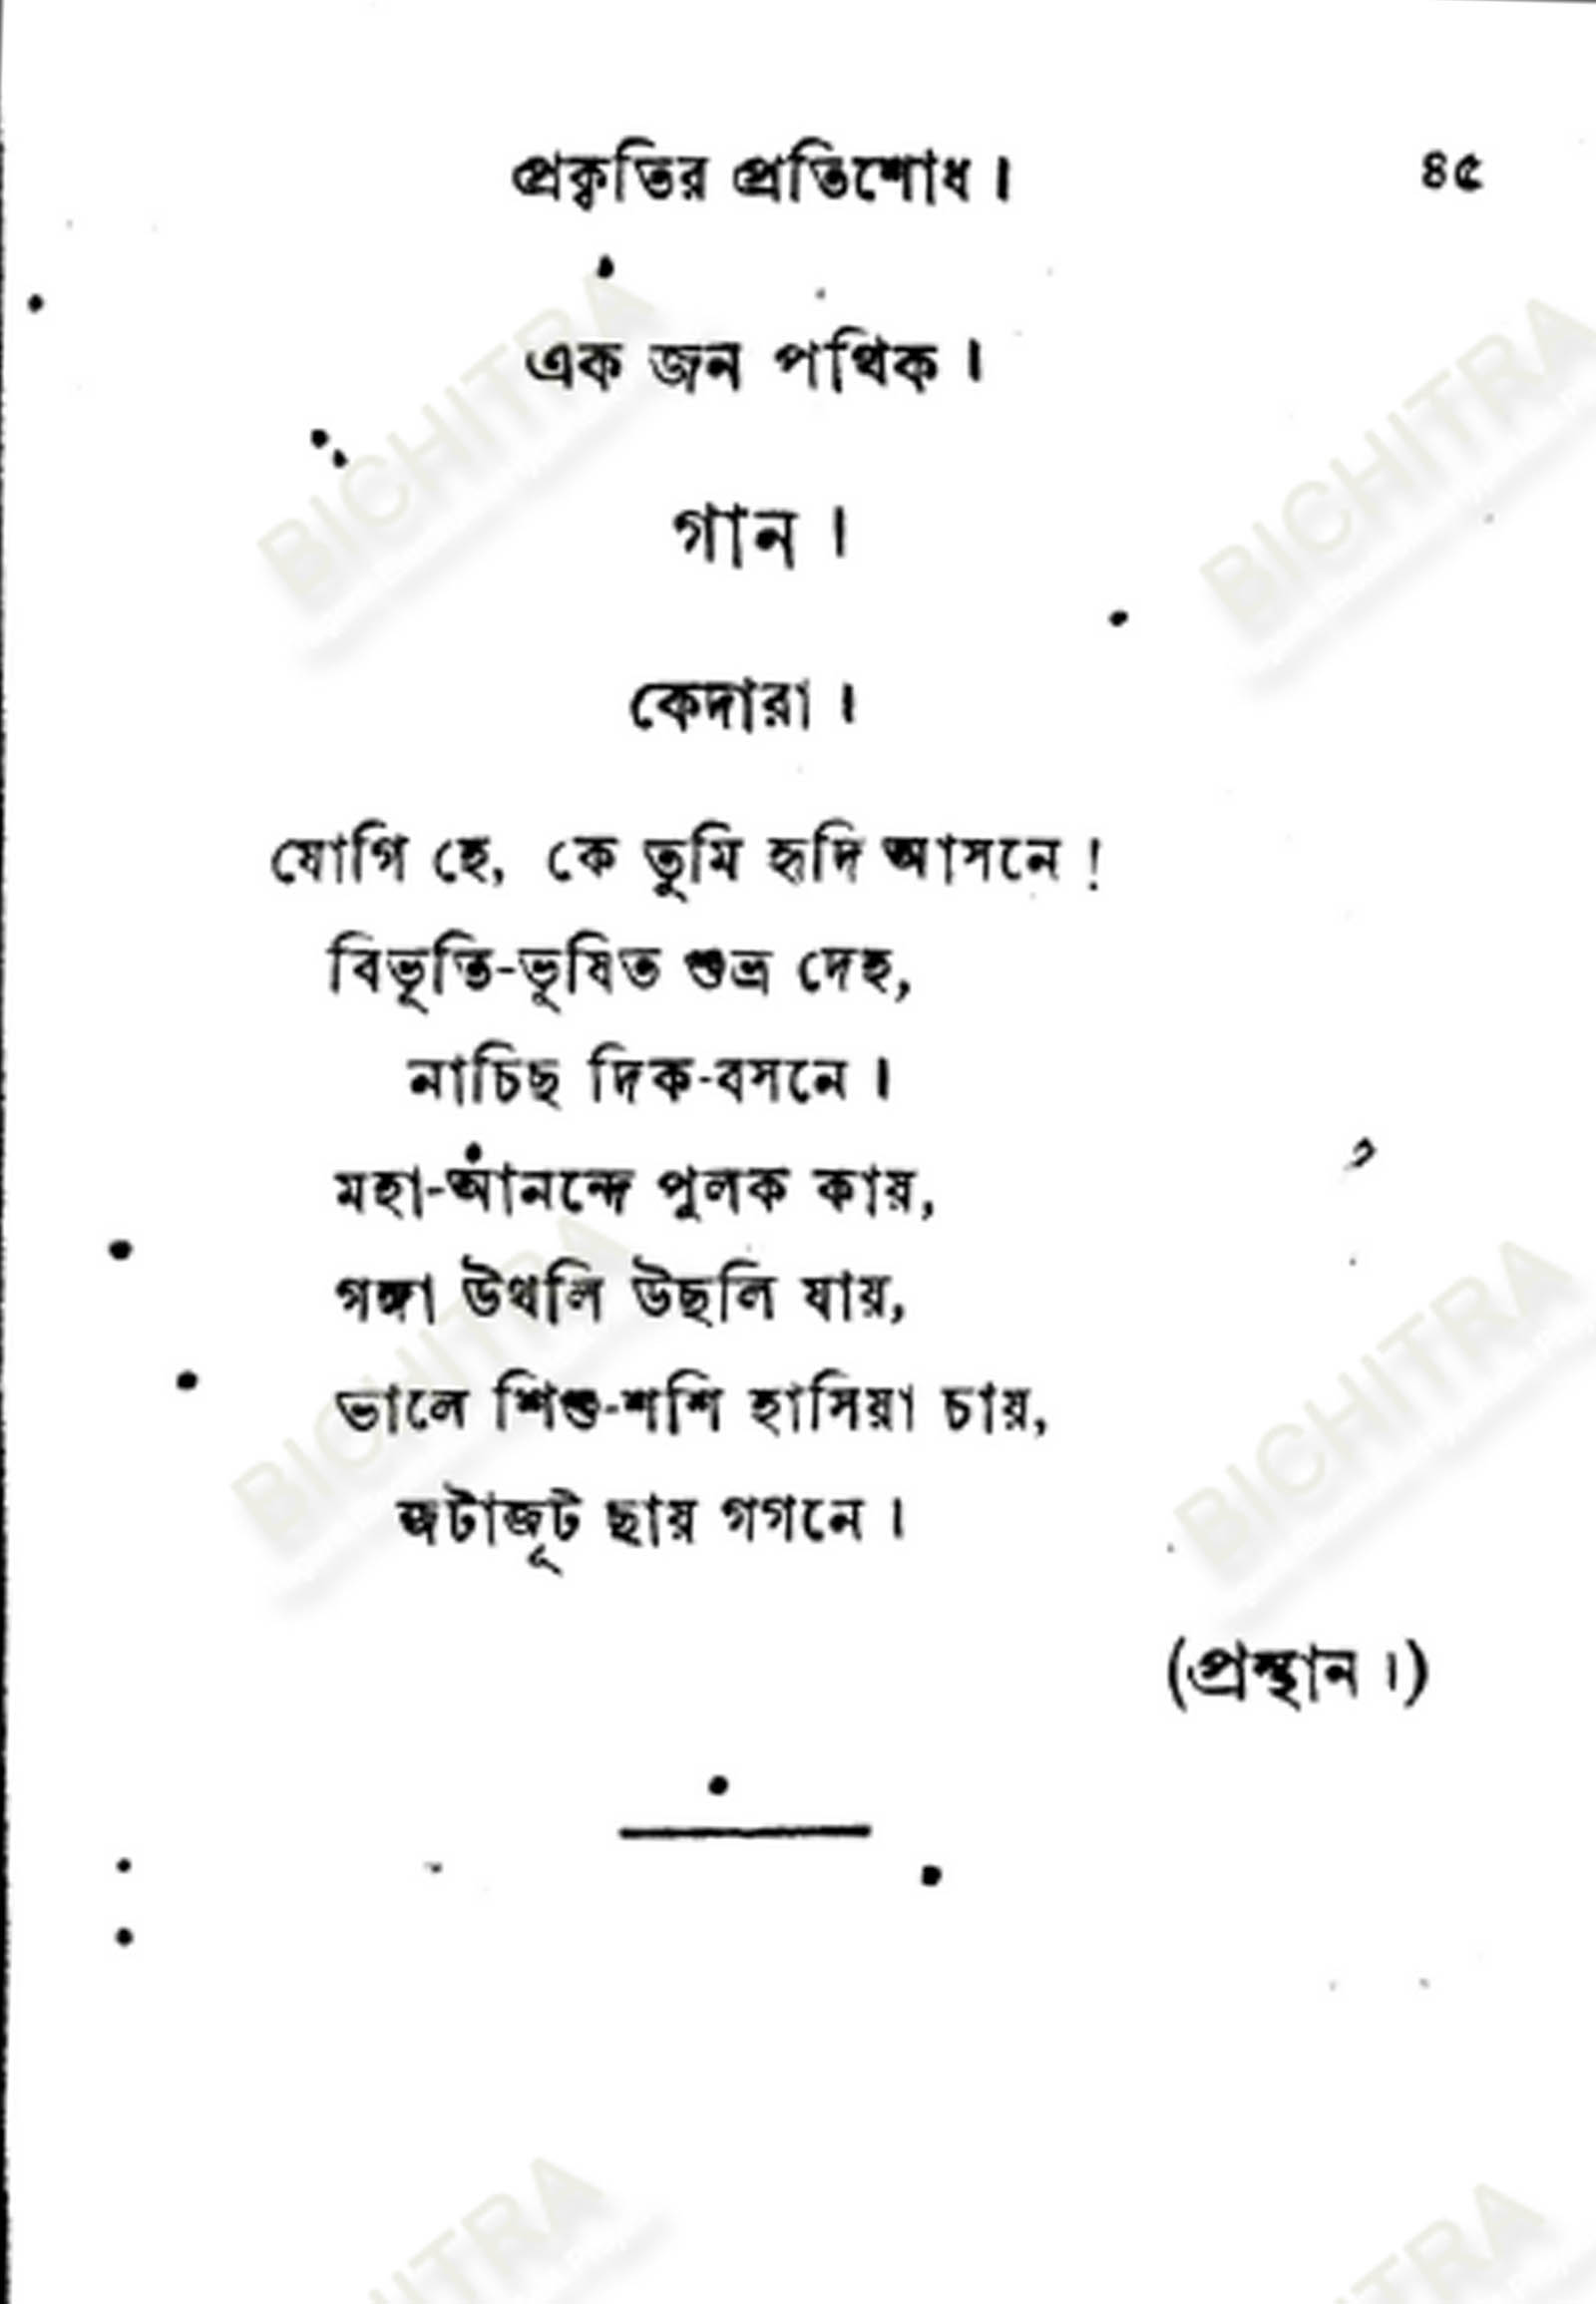 প্রকৃতির প্রতিশোধ।
৪৫
এক জন পথিক।
গান।
কেদারা।
যোগি হে, কে তুমি হৃদি আসনে!
বিভূতি-ভূষিত শুভ্র দেহ,
নাচিছ দিক-বসনে।
মহা-আনন্দে পুলক কায়,
গঙ্গা উথলি উছলি যায়,
ভালে শিশু-শশি হাসিয়া চায়,
জটাজূট ছায় গগনে।
(প্রস্থান।)
BICHITRA
BICHITRA
BICHITRA
BICHITRA